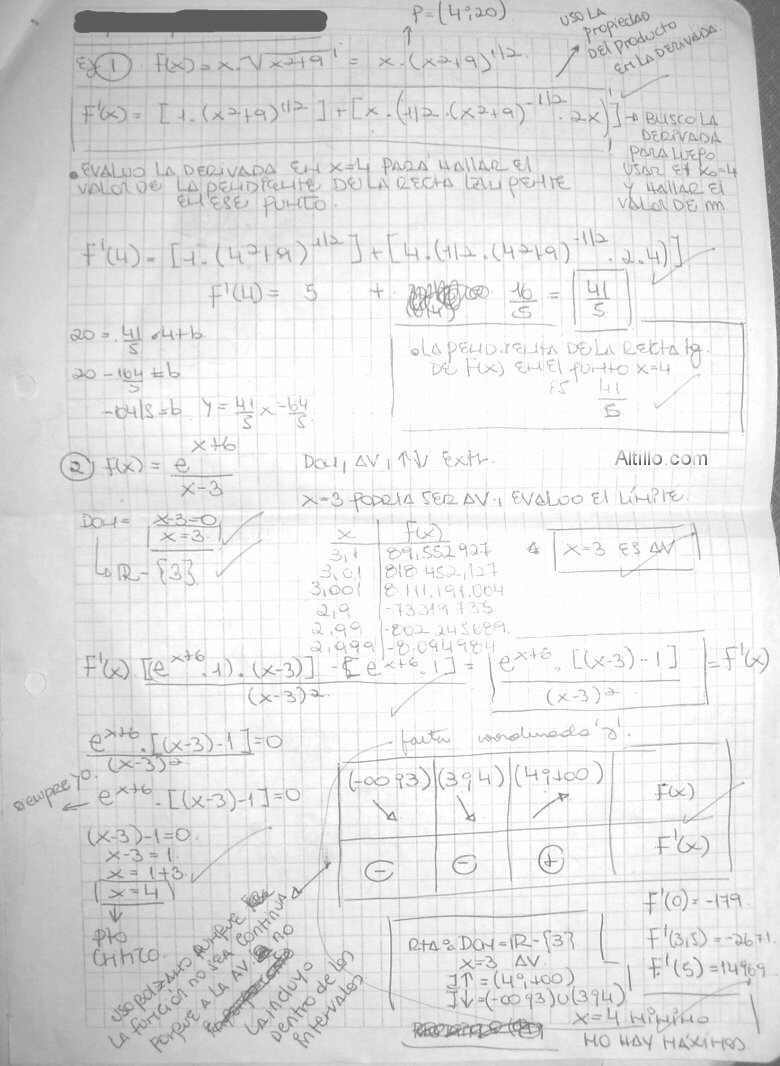 P = (4;20)
USO LA
propiedad
DEL producto
EN LA DERIVADA.
Ej 1 f(x) = x · √(x²+9) = x · (x²+9)^1/2
F'(x) = [1 · (x²+9)^1/2] + [x · (1/2 · (x²+9)^-1/2 · 2x)] → BUSCO LA
DERIVADA
PARA LUEGO
USAR EN x₀=4
Y HALLAR EL
VALOR DE m
• EVALUO LA DERIVADA EN X=4 PARA HALLAR EL
VALOR DE LA PENDIENTE DE LA RECTA TANGENTE
EN ESE PUNTO.
F'(4) = [1 · (4²+9)^1/2] + [4 · (1/2 · (4²+9)^-1/2 · 2 · 4)]
F'(4) = 5 + 16/5 = 41/5
20 = 41/5 · 4 + b
20 - 164/5 = b
-64/5 = b Y = 41/5 x - 64/5
• LA PENDIENTE DE LA RECTA tg.
DE F(x) EN EL PUNTO X=4
ES 41/5
2 f(x) = e^x+6 / x-3 Dom, AV, ↑↓ Extr.
Altillo.com
X=3 PODRIA SER AV, EVALUO EL LÍMITE.
DOM = x-3=0
x=3
↳ ℝ - {3}
x f(x)
3,1 89.552927
3,01 818 452,127
3,001 8.111.191.004
2,9 -73319735
2,99 -802 245689
2,999 -8.094984
X=3 ES AV
F'(x) [(e^x+6 · 1) · (x-3)] - [e^x+6 · 1] / (x-3)² = e^x+6 · [(x-3) - 1] / (x-3)² = F'(x)
e^x+6 · [(x-3)-1] / (x-3)² = 0
falta coordenada "y".
siempre
e^x+6 · [(x-3)-1] = 0
(x-3)-1=0
x-3=1
x=1+3
x=4
PTO
CRITICO
(-∞;3) (3;4) (4;+∞)
↘ ↘ ↗ f(x)
- - + F'(x)
USO BOLZANO PORQUE
LA FUNCION NO SEA CONTINUA
PORQUE A LA AV. NO
LA INCLUYO
DENTRO DE LOS
INTERVALOS
F'(0) = -179
F'(3,5) = -2671
F'(5) = 14969
RTA: DOM = ℝ - {3}
X=3 AV
I↑ = (4;+∞)
I↓ = (-∞;3)∪(3;4)
X=4 MINIMO
NO HAY MÁXIMOS